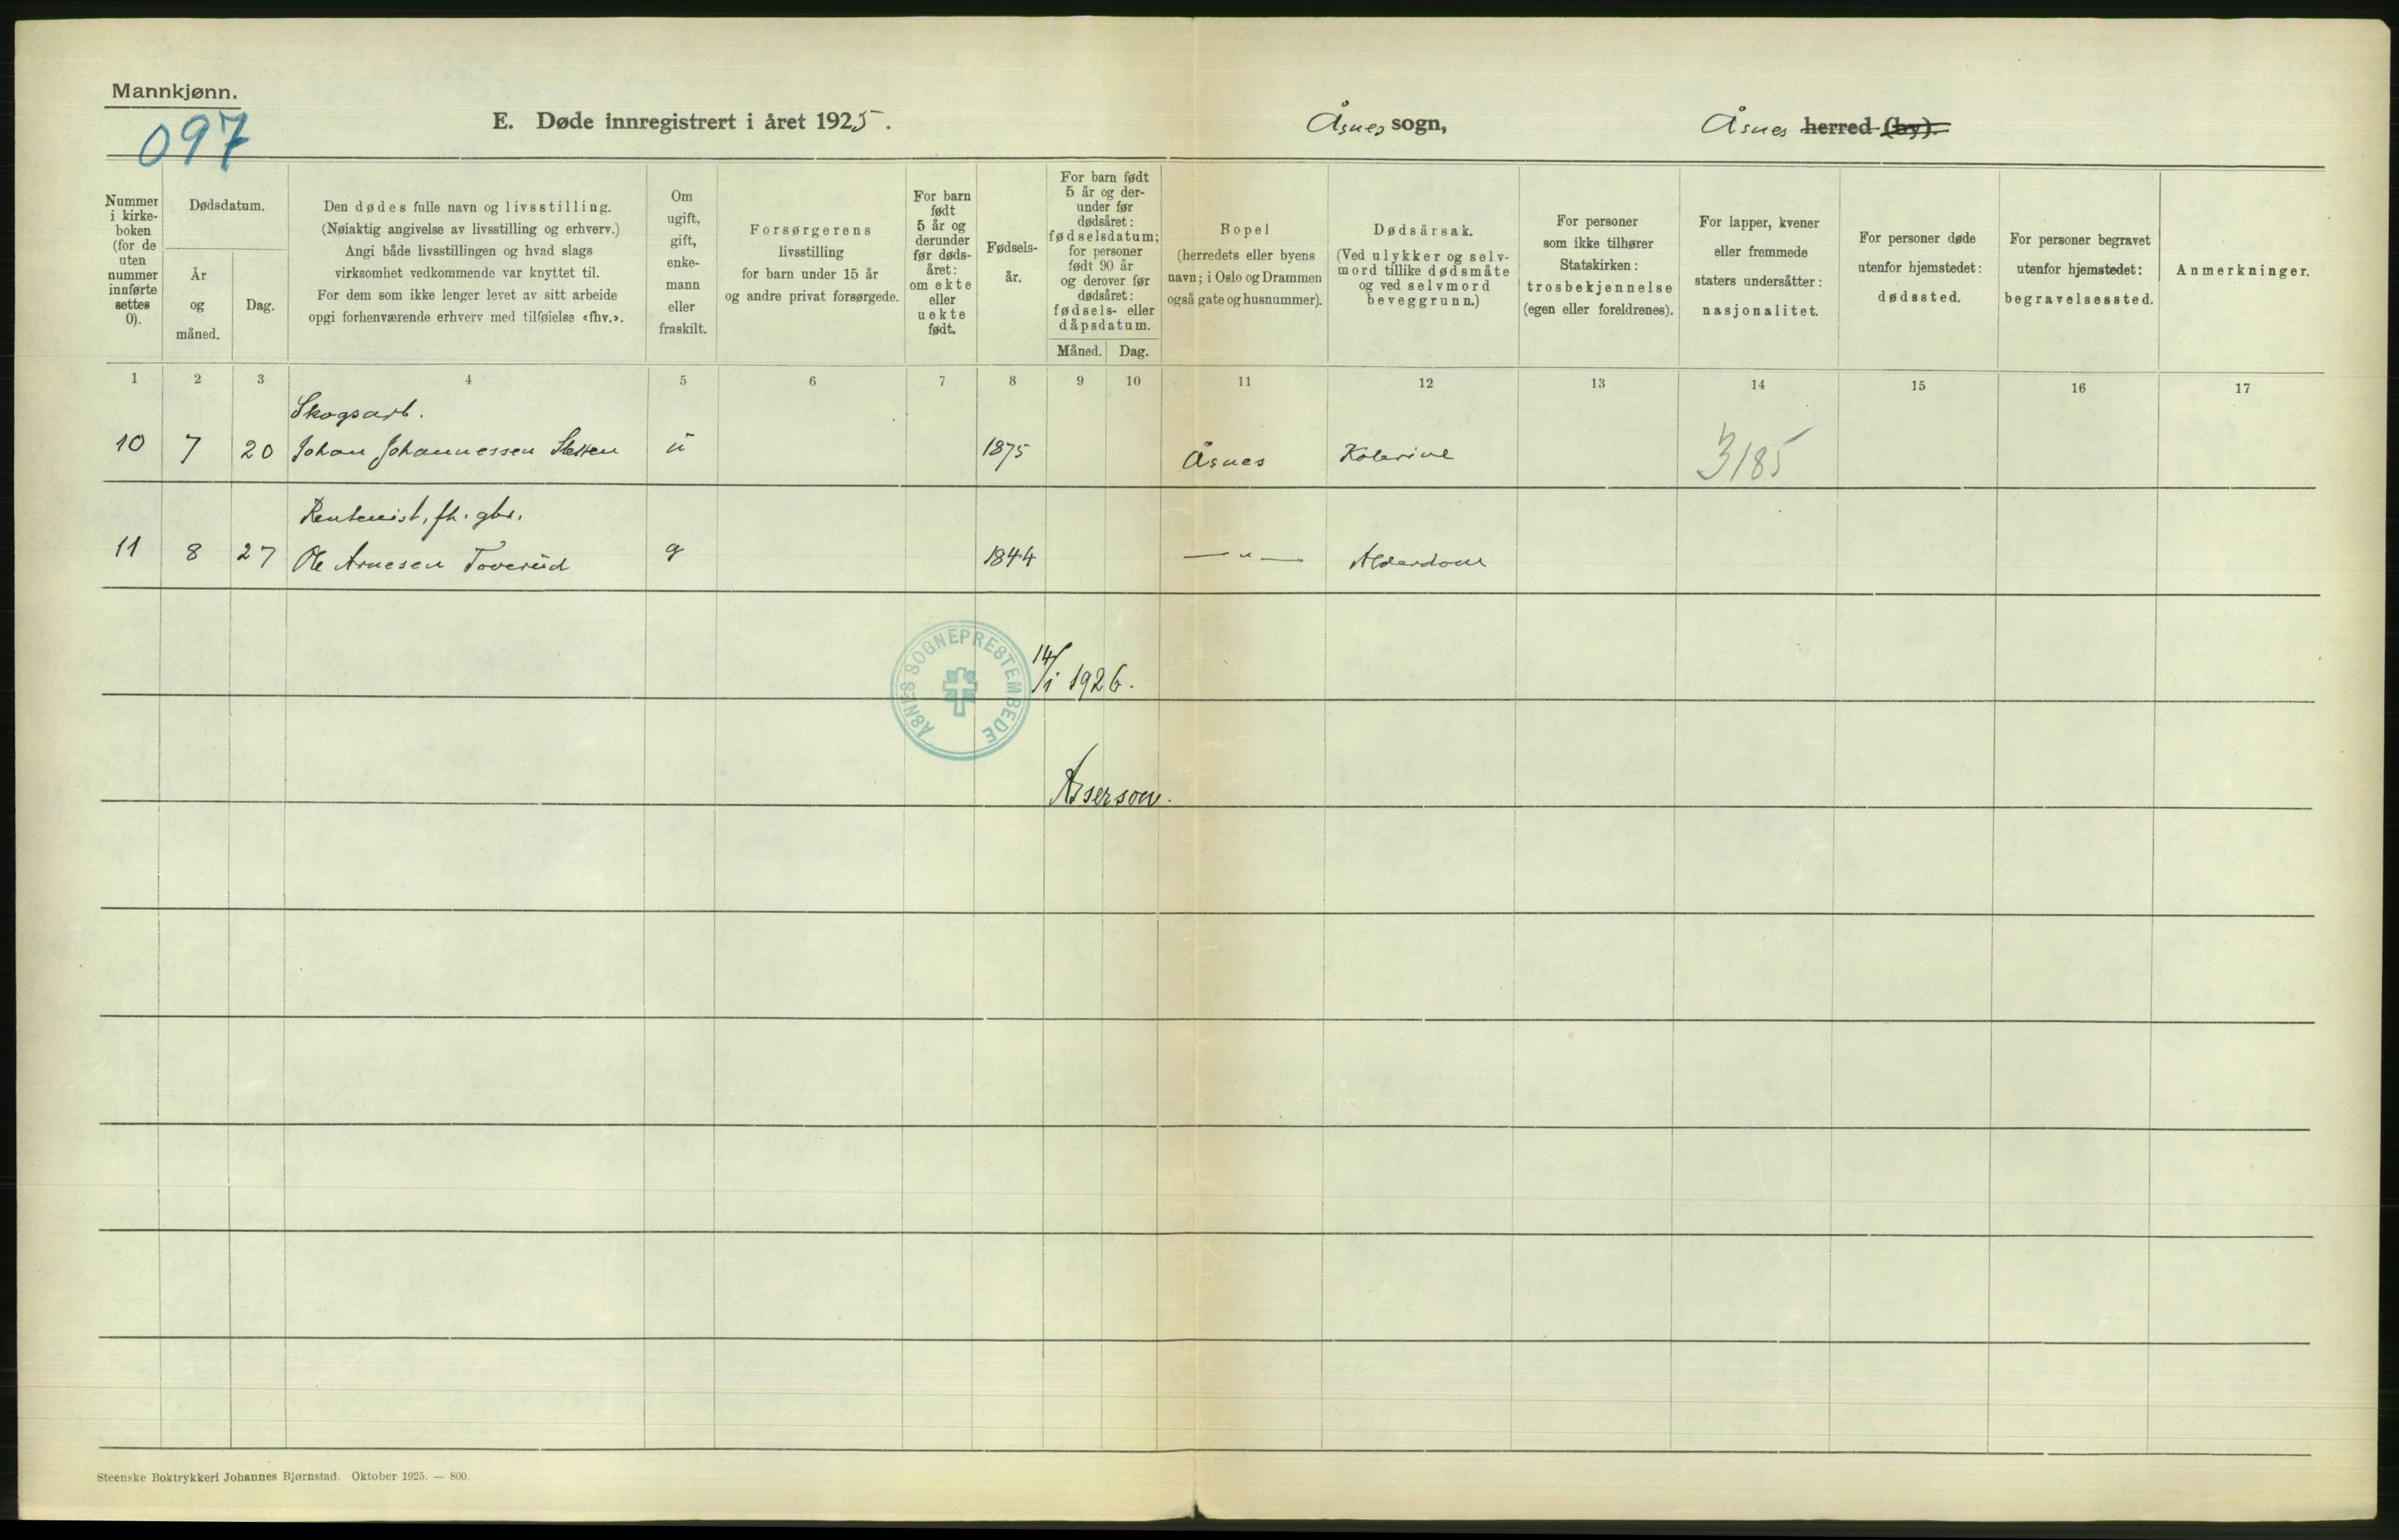 Mannkjønn.
097
E. Døde innregistrert i året 1925.
Åsnes sogn,
Åsnes herred (by).
Nummer
i kirke-
boken
(for de
uten
nummer
innførte
settes
0).
Dødsdatum.
År
og
måned.
Dag.
Den dødes fulle navn og livsstilling.
(Nøiaktig angivelse av livsstilling og erhverv.)
Angi både livsstillingen og hvad slags
virksomhet vedkommende var knyttet til.
For dem som ikke lenger levet av sitt arbeide
opgi forhenværende erhverv med tilføielse «fhv.».
Om
ugift,
gift,
enke-
mann
eller
fraskilt.
Forsørgerens
livsstilling
for barn under 15 år
og andre privat forsørgede.
For barn
født
5 år og
derunder
før døds-
året:
om ekte
eller
uekte
født.
Fødsels-
år.
For barn født
5 år og der-
under før
dødsåret:
fødselsdatum;
for personer
født 90 år
og derover før
dødsåret:
fødsels- eller
dåpsdatum.
Måned. Dag.
Bopel
(herredets eller byens
navn; i Oslo og Drammen
også gate og husnummer).
Dødsårsak.
(Ved ulykker og selv-
mord tillike dødsmåte
og ved selvmord
beveggrunn.)
For personer
som ikke tilhører
Statskirken:
trosbekjennelse
(egen eller foreldrenes).
For lapper, kvener
eller fremmede
staters undersåtter:
nasjonalitet.
For personer døde
utenfor hjemstedet:
dødssted.
For personer begravet
utenfor hjemstedet:
begravelsessted.
Anmerkninger.
1 2 3 4 5 6 7 8 9 10 11 12 13 14 15 16 17
Skogsarb.
10 7 20 Johan Johannessen Sletten u 1875 Åsnes Kolerine 3185
Rentenist, fh. gbr.
11 8 27 Ole Arnesen Toverud g 1844 — " — Alderdom
ÅSNES SOGNEPRESTEMBEDE
14/1 1926.
Asserson.
Steenske Boktrykkeri Johannes Bjørnstad. Oktober 1925. — 800.